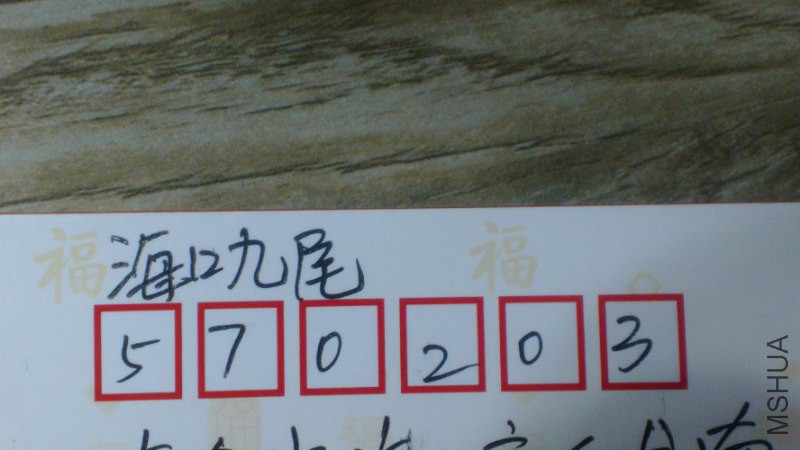 福 海口九尾 福
570203
MSHUA